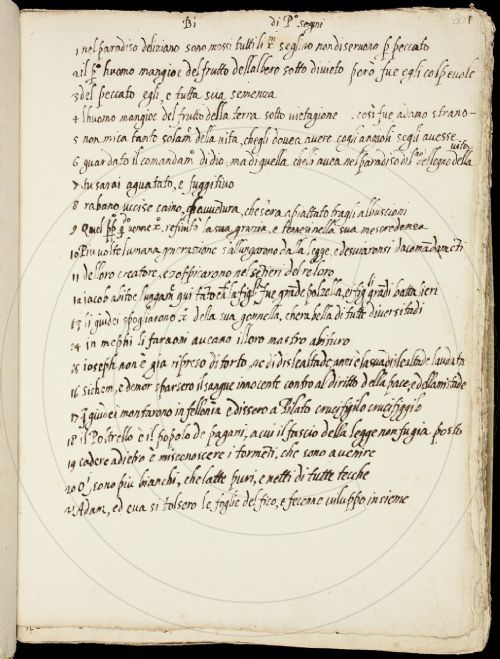 Bi di P.º segni
1 nel paradiso deliziano sono mossi tutti li segli vo non diservono p peccato
2 il huomo mangioe del frutto dell albero sotto divieto però fue egli colpevole
3 del peccato egli, e tutta sua semenza
4 L huomo mangioe del frutto della terra sotto vietagione . così fue adamo strano-
5 non mica tanto della vita, ch egli dovea avere cogli angioli s egli avesse
6 guardato il comandam. di dio, ma di quella che li avea nel paradiso di del legno della vita
7 tu sarai aguatato, e fuggitivo
8 rabano uccise caino, avventura, che s era apiattato fra gli albuscioni
9 Quel venne rifiutò la sua grazia, e tenensi nella sua mescredenza
10 Più volte l umana generazione s allungarono dalla legge, e desviaronsi da comandamenti
11 dello ro creatore, e
12 iacob qui la figl. fue grande polzella, e i figli gradi battaglieri
13 li giudei spogliarono X della sua gonnella, ch era bella di tutte diversitadi
14 in mephi li faraoni aveano il loro mastro abituro
15 ioseph non è già ripreso di torto, ne di dislealtade, anzi è la sua dislealtade laudata
16 Sichem, e demor sparsero il sangue innocente contro al diritto della pace, e dell amistade
17 giudei montarono in fellonia e dissero a Pilato crucifigilo crucifiggilo
18 il Postrello è il popolo de pagani, a cui il fascio della legge non fu gia posto
19 cadere adietro è misconoscere i tormenti, che sono a venire
20 O, sono più bianchi, che latte puri, e netti di tutte tecche
21 Adam, ed eva si tolsero le foglie del fico, e fecenne viluppo insieme